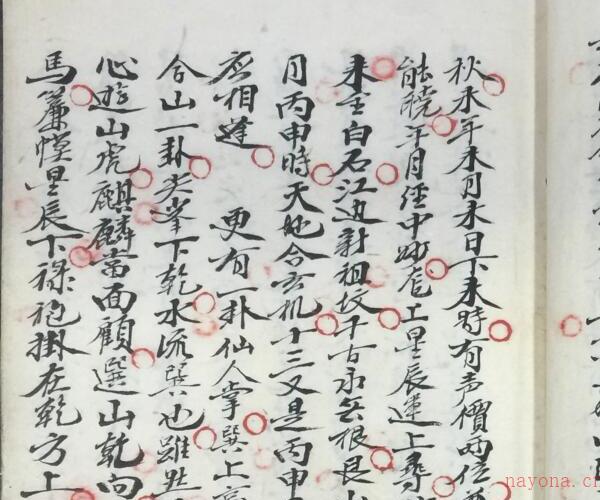 秋未年未月未日下未時有声價兩位
能曉年月經中妙危工星辰運上尋
未至白石江边新祖坟千古永無根艮山
月丙申時天地合玄机十三又是丙申
应相逢 更有一卦仙人掌巽上高
合山一卦尖峯下乾水流巽也難
心遊山虎麒麟當面顧選山乾向
馬簾幙星辰下祿袍掛在乾方上
nayona.c